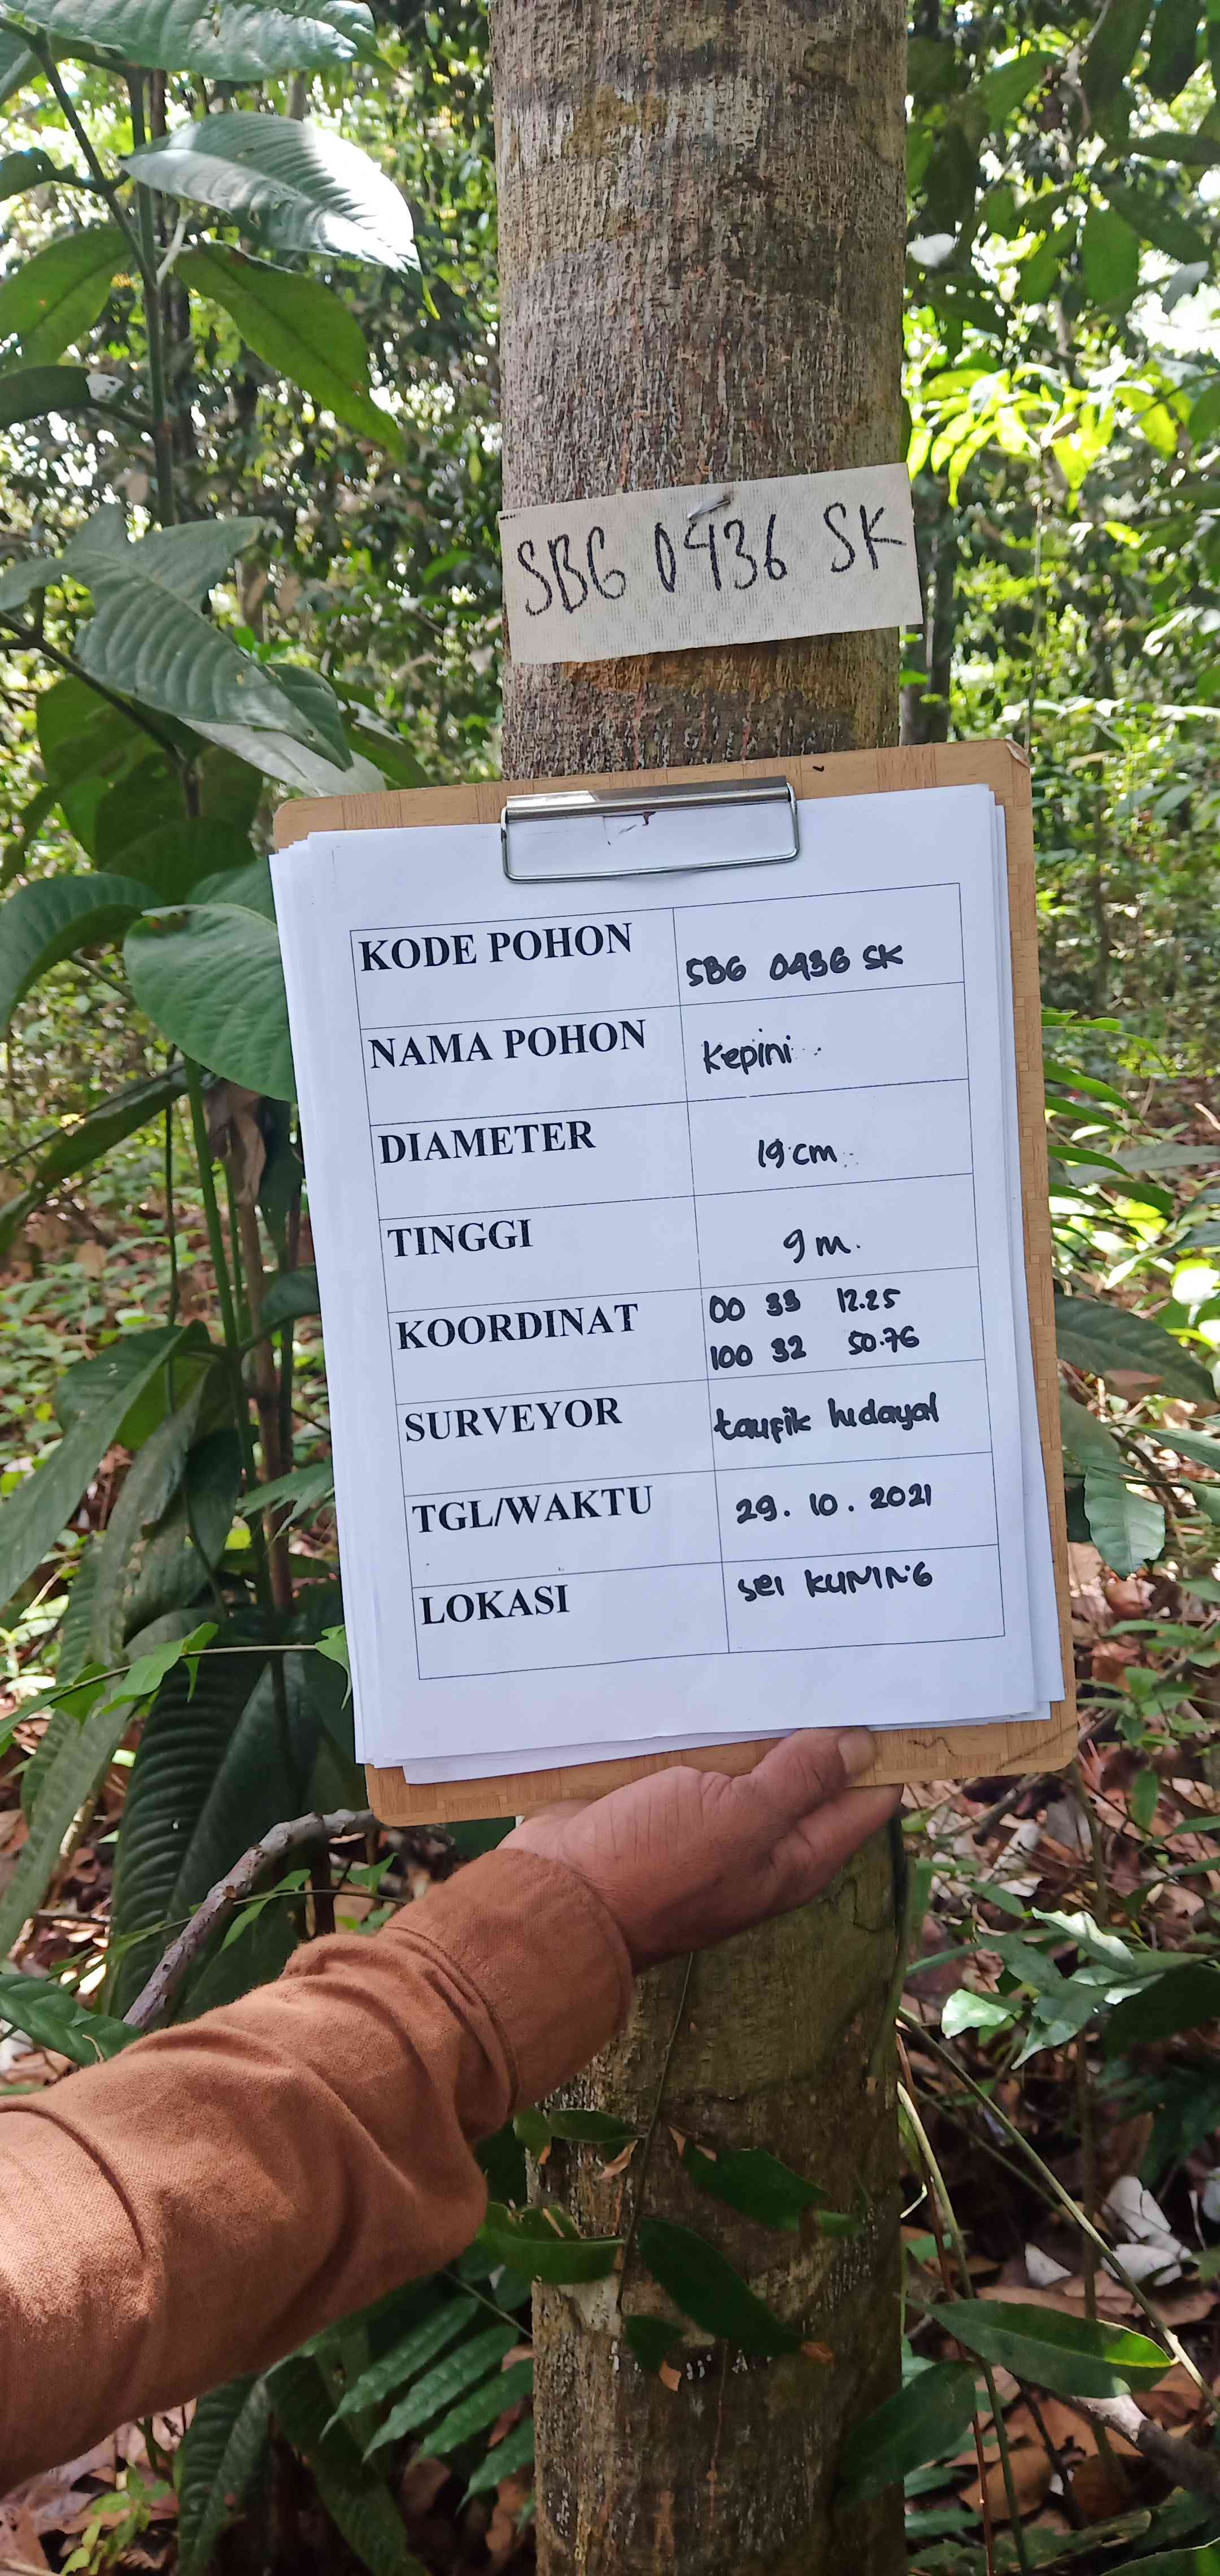 SBG 0436 SK
KODE POHON
SBG 0436 SK
NAMA POHON
Kepini
DIAMETER
19 cm
TINGGI
9 m.
KOORDINAT
00 33 12.25
100 32 50.76
SURVEYOR
taufik hidayat
TGL/WAKTU
29. 10. 2021
LOKASI
sei KUNING